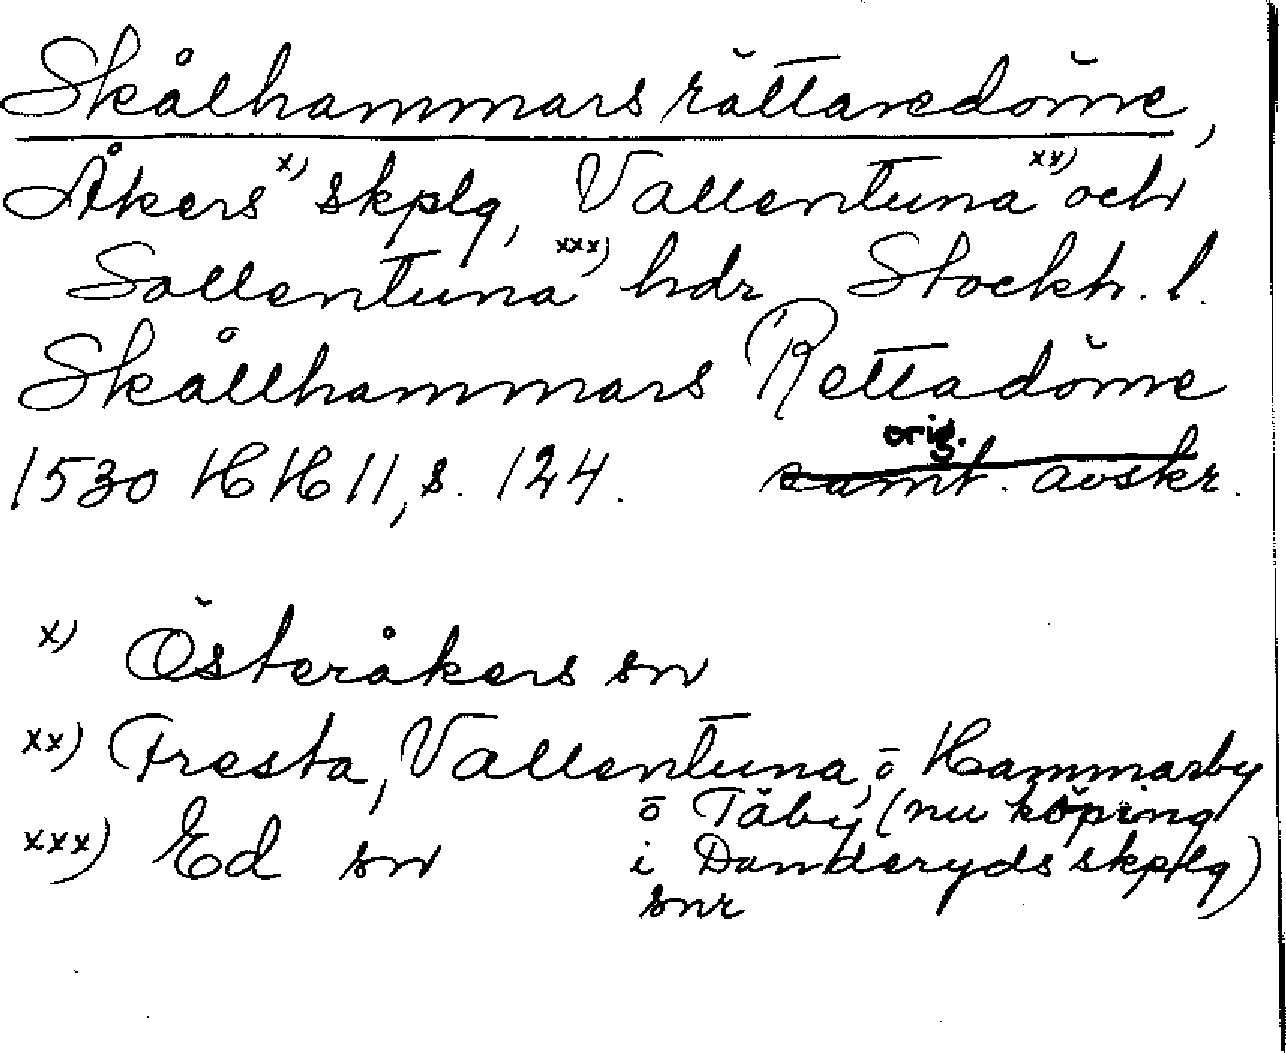 Skålhammars rättaredöme,
Åkers x) skplg, Vallentuna xx) och
Sollentuna xxx) hdr Stockh. l.
Skållhammars Rettadöme
orig.
1530 HH 11, s. 124. samt. avskr.
x) Österåkers sn
xx) Fresta, Vallentuna, ö Hammarby
ö Täby (nu köping
xxx) Ed sn i Danderyds skplg)
snr